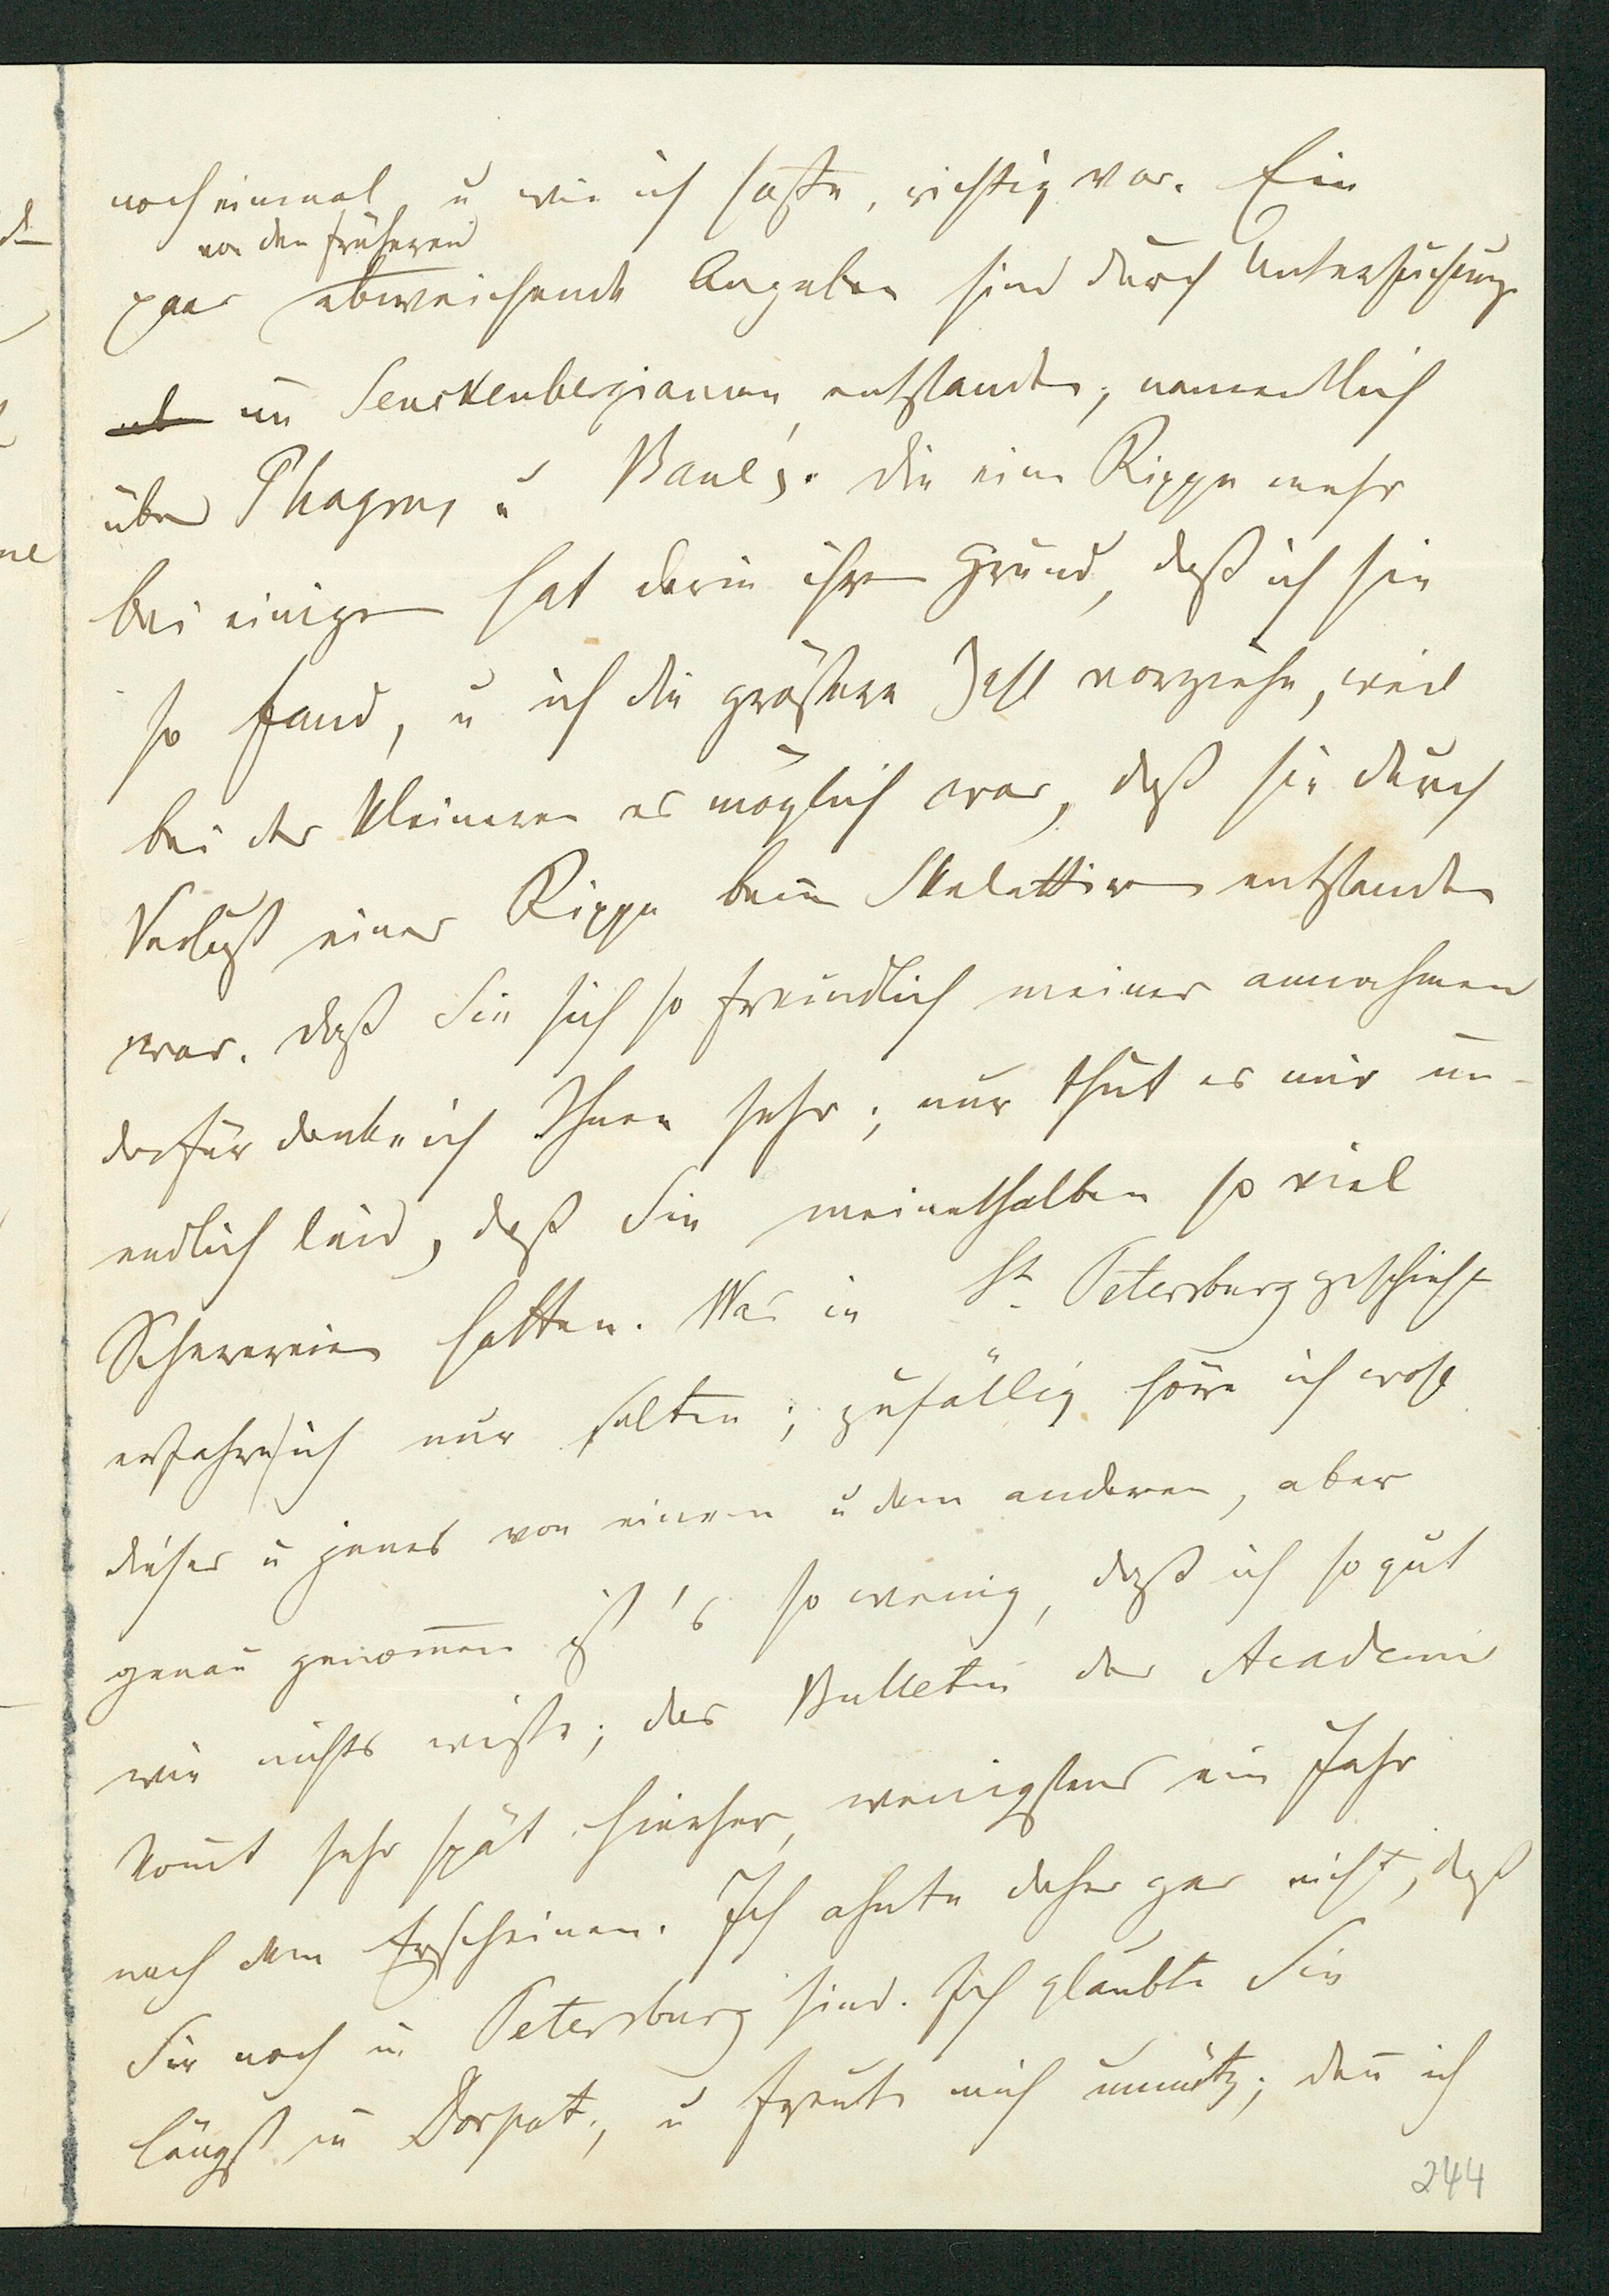 noch einmal u wie ich hoffe, richtig vor. Ein
von den früheren
paar abweichende Angaben sind durch Untersuchung
im Senckenbergianum entstanden, namentlich
über Phagrus u Bane's. Die eine Rippe mehr
bei einigen hat darin ihren Grund, daß ich sie
so fand, u ich die größere Zahl vorziehe, weil
bei der kleineren es möglich war, daß sie durch
Verlust einer Rippe beim Skelettiren entstanden
war. Daß Sie sich so freundlich meiner annahmen
dafür danke ich Ihnen sehr; nur thut es mir un-
endlich leid, daß Sie meinethalben so viel
Scherereien hatten. Was in St. Petersburg geschieht
erfahre ich nur selten; zufällig höre ich wohl
dieses u jenes von einem u dem anderen, aber
genau genommen ist's so wenig, daß ich so gut
wie nichts weiß; das Bulletin der Academie
kommt sehr spät hierher, wenigstens ein Jahr
nach dem Erscheinen. Ich ahnte daher gar nicht, daß
Sie noch in Petersburg sind. Ich glaubte Sie
längst in Dorpat, u freute mich unnütz; denn ich
244